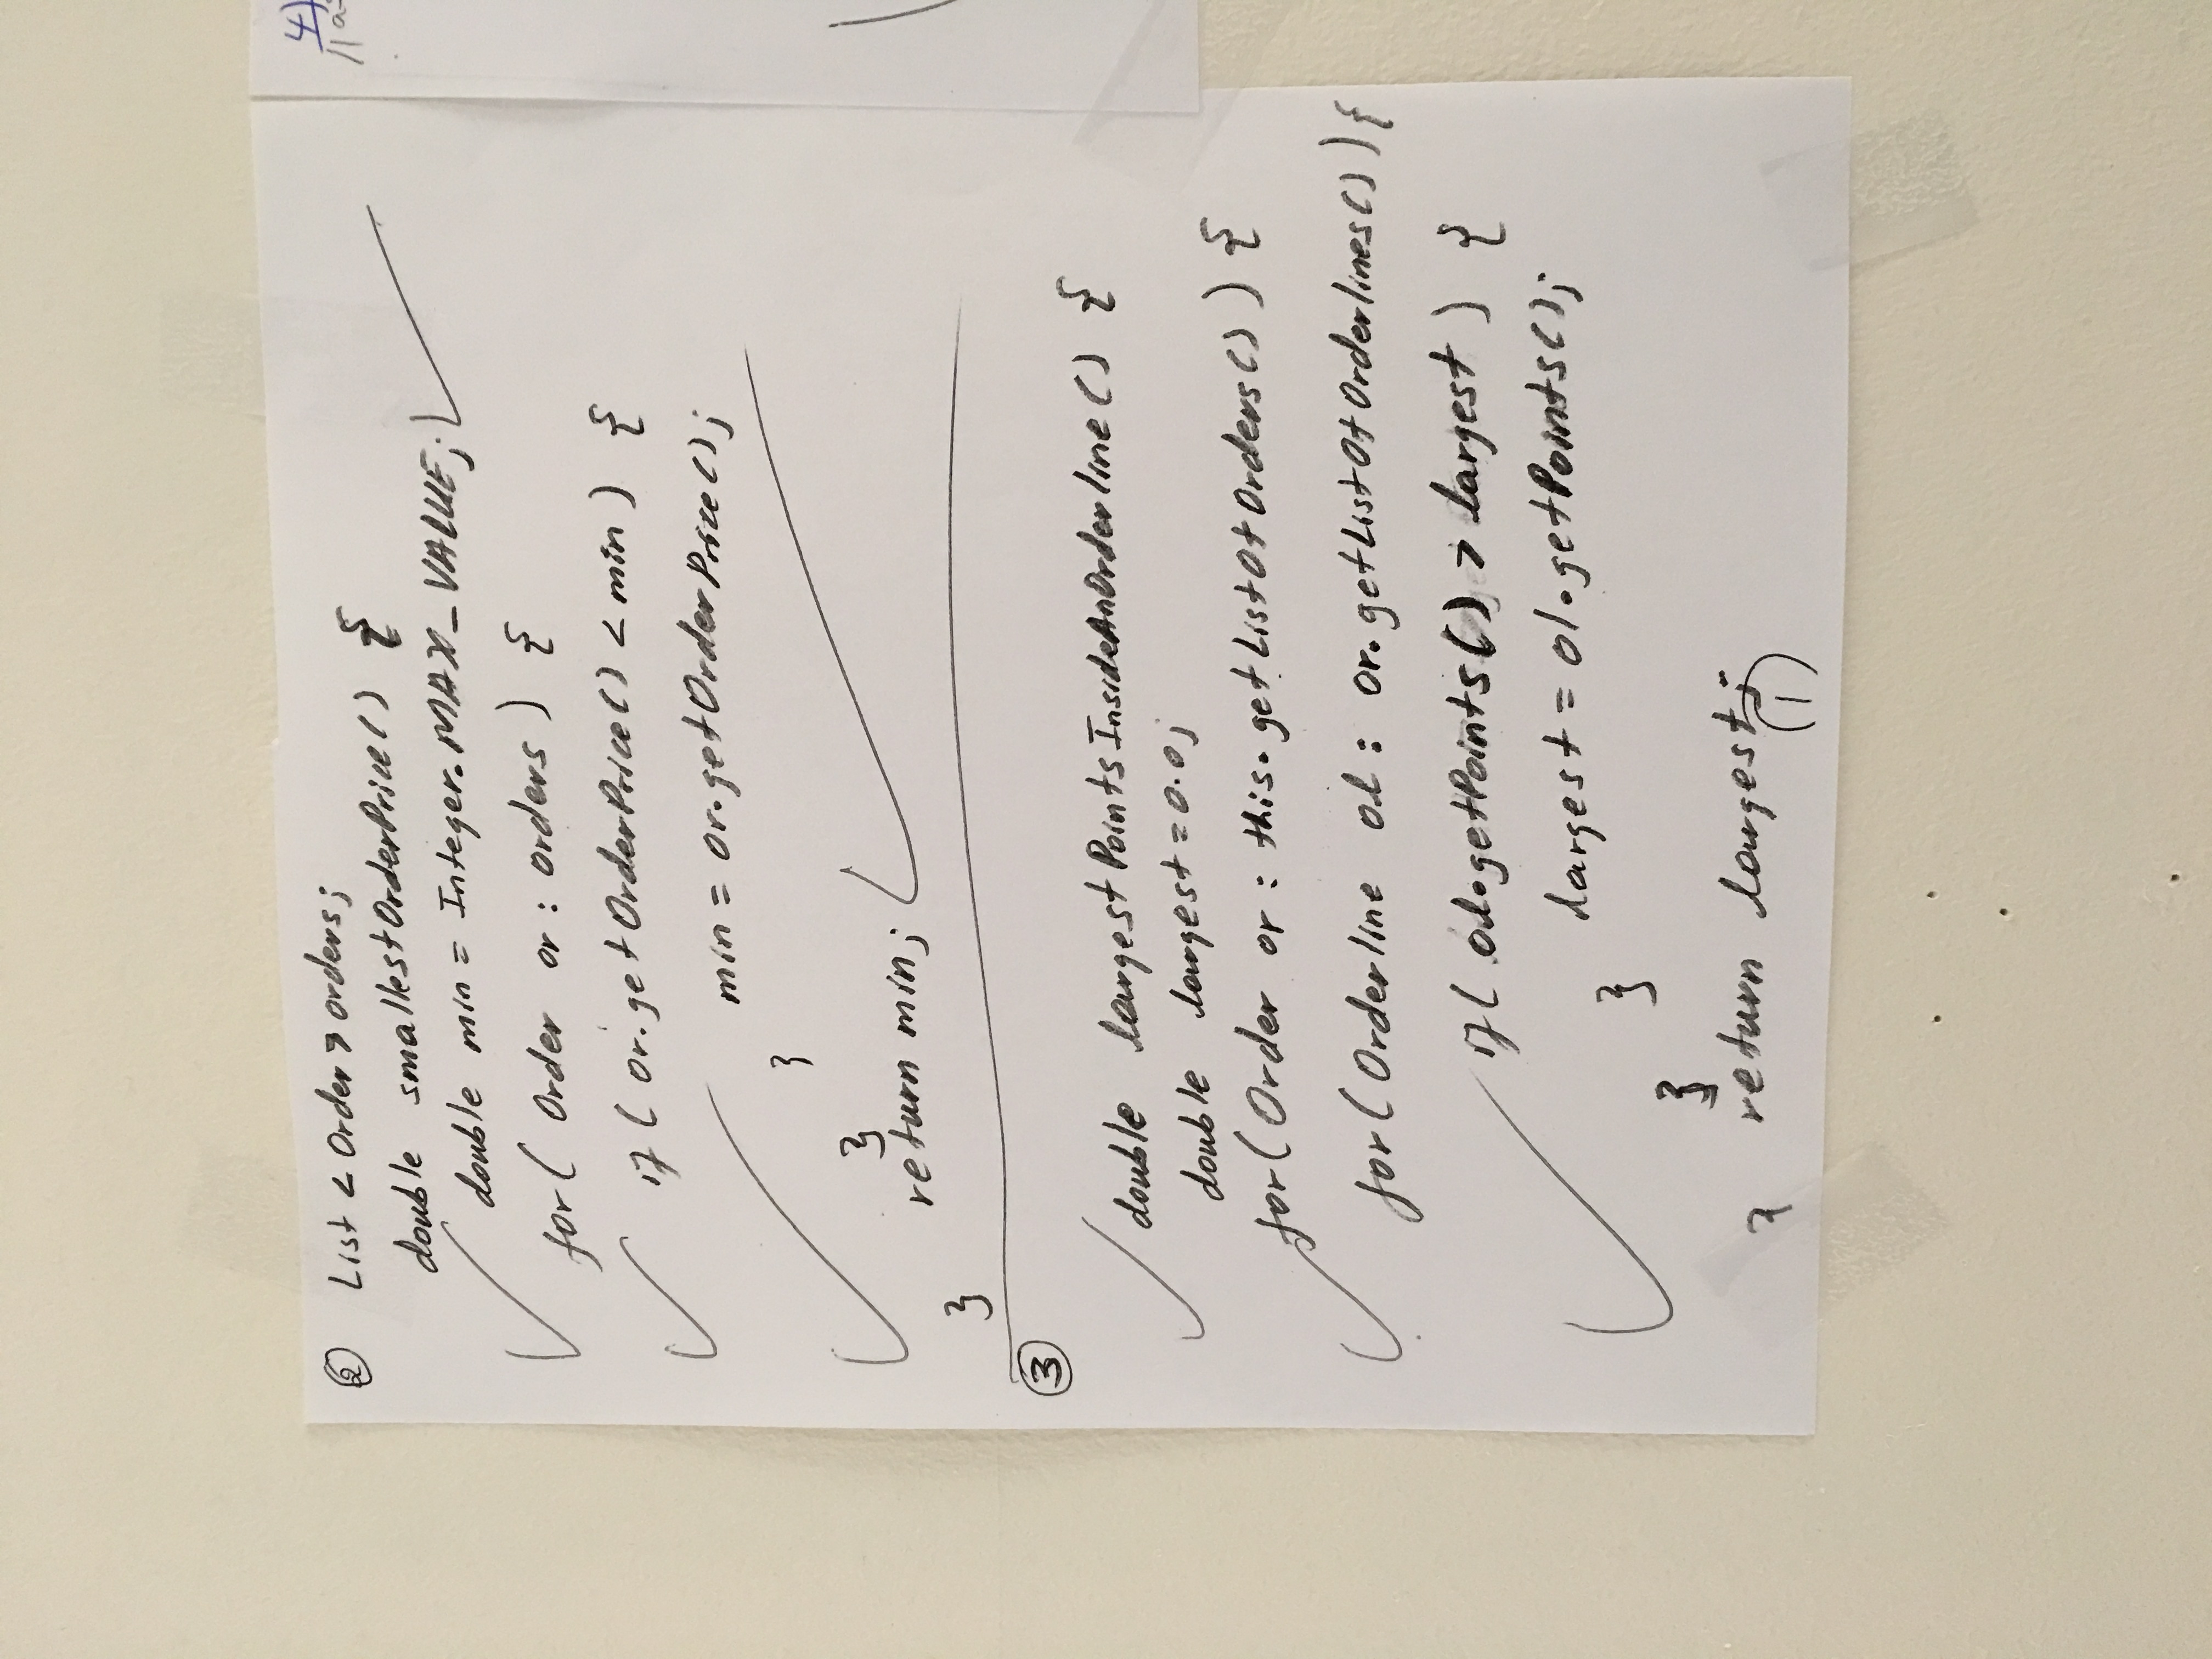 ② List < Order > orders;
double smallestOrderPrice() {
double min = Integer.MAX_VALUE;
for( Order or : orders ) {
if ( or.getOrderPrice() < min ) {
min = or.getOrderPrice();
}
}
return min;
}
③
double largestPointsInsideAnOrderline() {
double largest = 0.0;
for( Order or : this.getListOfOrders() ) {
for( Orderline ol : or.getListOfOrderlines() ) {
if( ol.getPoints() > largest ) {
largest = ol.getPoints();
}
}
return largest;
}
(1)
4)